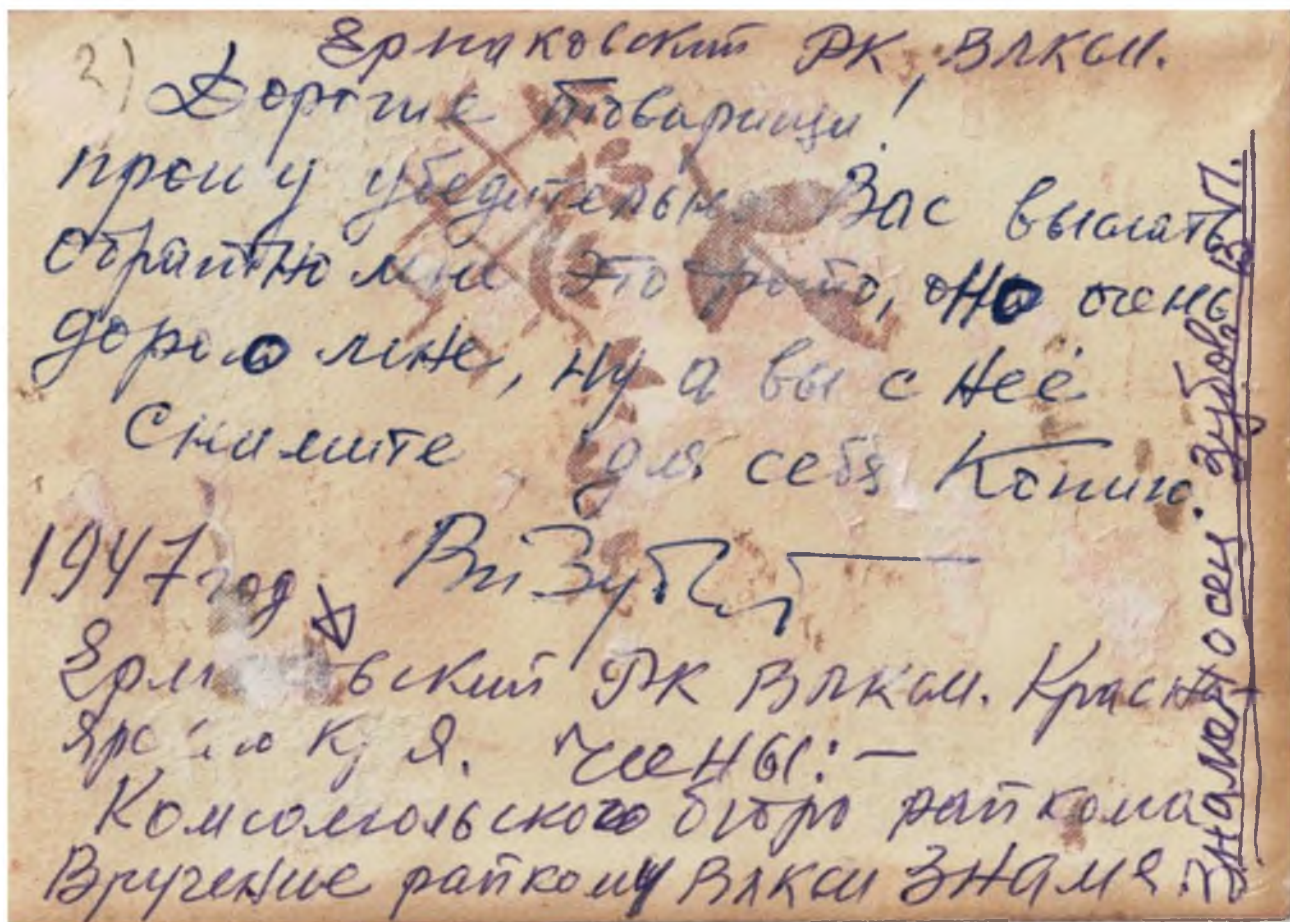 Ермаковский РК, ВЛКСМ.
2) Дорогие товарищи!
прошу убедительно Вас выслать
обратно мне это фото, оно очень
дорого мне, ну а вы с неё
снимите для себя копию.
1947 год
ВПЗубов
Ермаковский РК ВЛКСМ. Красно
ярского края. Члены:-
Комсомольского бюро райкома
Вручение райкому ВЛКСМ ЗНАМЯ.
Знаменосец Зубов В.П.